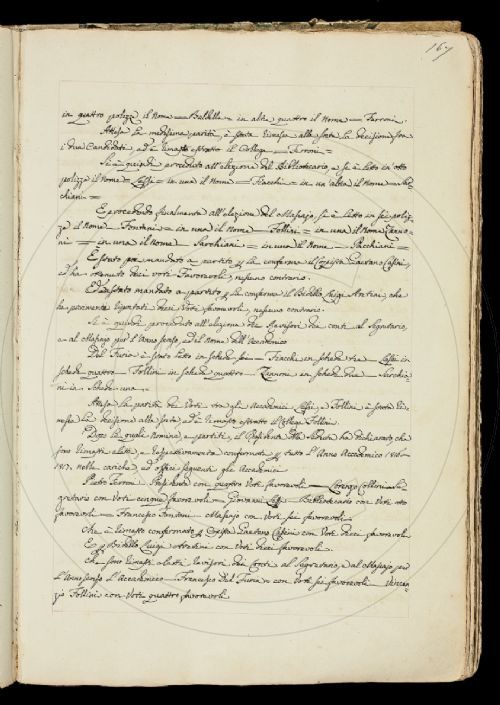 167
in quattro polizze il nome = Baldelli = in altre quattro il nome = Ferroni.
Attesa la medesima parità, è stata rimessa alla sorte la decisione fra
i due Candidati, ed è rimasto estratto il Collega = Ferroni =
Si è quindi proceduto all'elezione del Bibliotecario, e si è letto in otto
polizze il nome = Lessi = in una il nome = Fiacchi = in un'altra il nome =
chiani =
E procedendo finalmente all'elezione del Massajo, si è letto in sei poliz-
ze il nome = Fontani = in una il nome = Follini = in una il nome Zanno-
ni = in una il nome = Sarchiani = in una il nome = Fiacchiani =
È stato poi mandato a partito per la conferma il Copista Gaetano Casini,
ed ha ottenuto dieci voti favorevoli, nessuno contrario.
Ed è stato mandato a partito per la conferma il Bidello Luigi, che
ha parimente riportati dieci voti favorevoli, nessuno contrario.
Si è quindi proceduto all'elezione dei Revisori dei conti al Segretario,
e al Massajo per l'Anno scorso, ed il Nome dell'Accademico
Del Furia è stato letto in schede sei = Fiacchi in schede tre = Lessi in
schede quattro = Follini in schede quattro = Zannoni in schede due = Sarchia-
ni in schede una =
Attesa la parità dei Voti tra gli Accademici Lessi, e Follini è stata ri-
messa la decisione alla sorte, ed è rimasto estratto il Collega Follini.
Dopo le quali nomine, e partiti, il Presidente della seduta ha dichiarato, che
sono rimasti eletti, e respettivamente confermati per tutto l'Anno Accademico 1816-
1817, nelle cariche, ed offici seguenti gli Accademici
Pietro Ferroni = Presidente con quattro Voti favorevoli = Lorenzo Collini = Se-
gretario con Voti cinque favorevoli = Giovanni Lessi = Bibliotecario con Voti otto
favorevoli = Francesco Fontani = Massajo con Voti sei favorevoli.
Che è rimasto confermato per Copista Gaetano Casini con Voti dieci favorevoli
E per Bidello Luigi con Voti dieci favorevoli.
Che sono rimasti eletti Revisori dei Conti al Segretario, e al Massajo per
l'Anno scorso l'Accademico = Francesco Del Furia = con Voti sei favorevoli = Vincen-
zio Follini con Voti quattro favorevoli